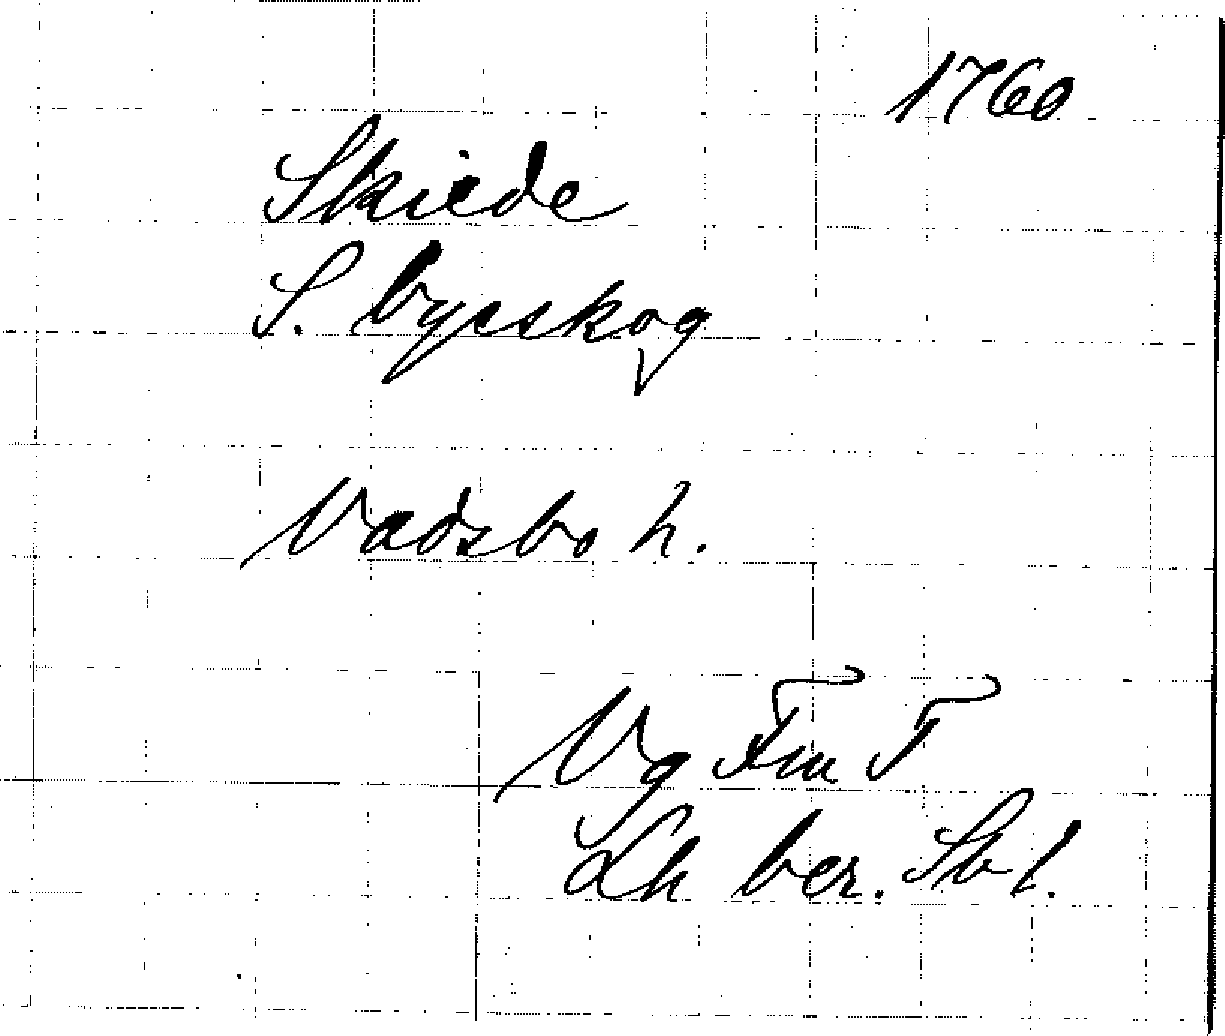 1760
Skiede
S. byeskog
Vadsbo h.
Vg Fm T
Lh ber. Sbl.